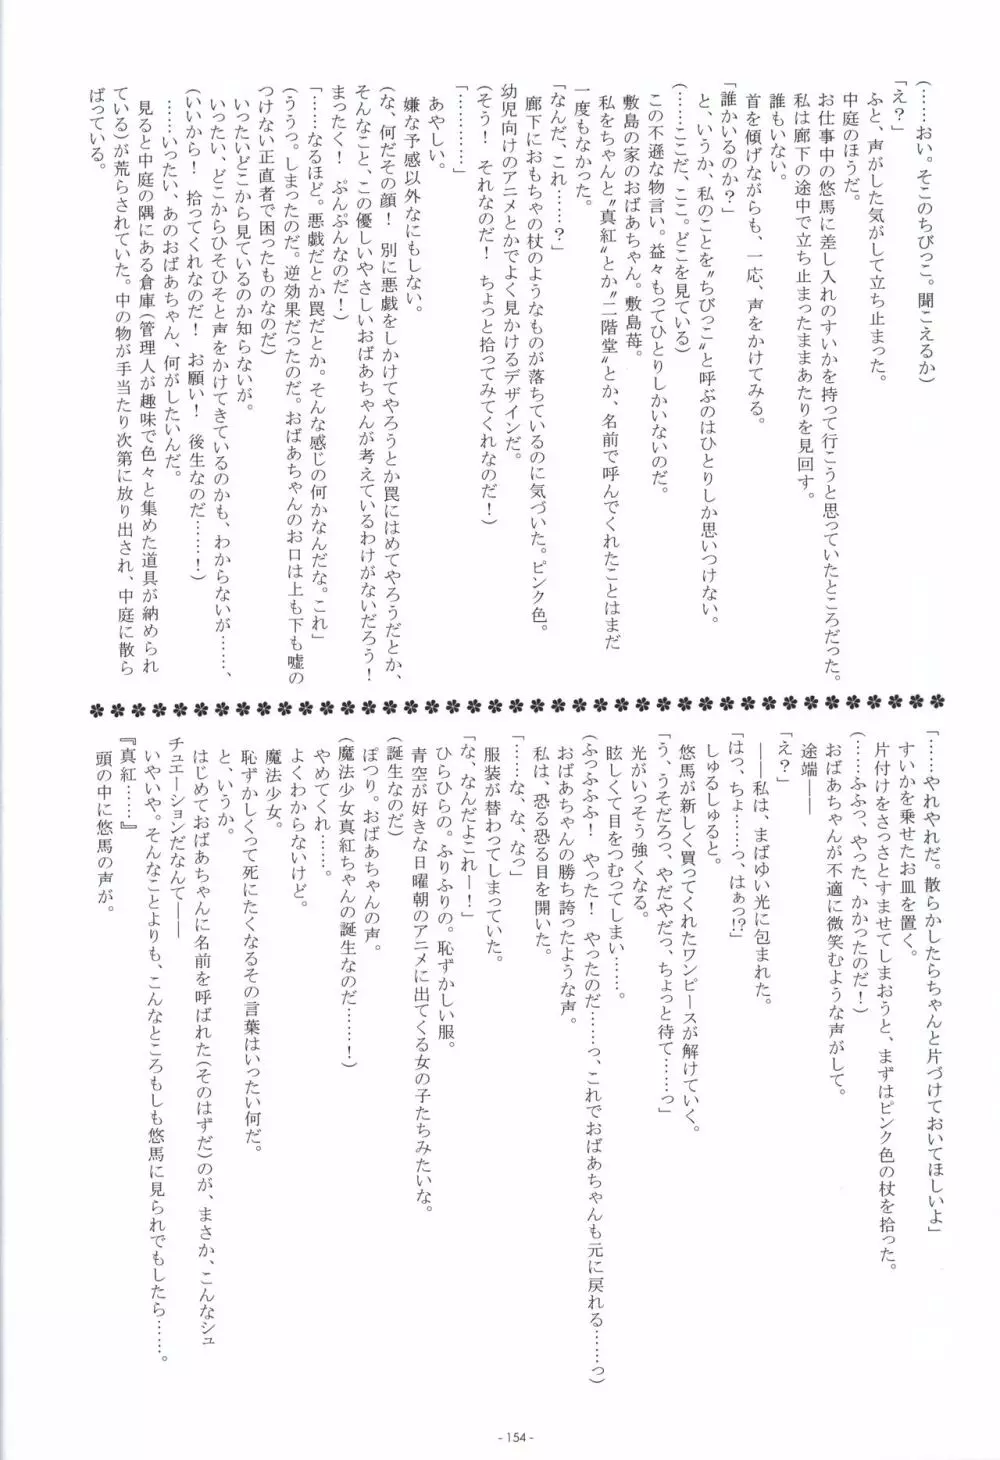 (……おい。そこのちびっこ。聞こえるか)
「え？」
ふと、声がした気がして立ち止まった。
中庭のほうだ。
お仕事中の悠馬に差し入れのすいかを持って行こうと思っていたところだった。
私は廊下の途中で立ち止まったままあたりを見回す。
誰もいない。
首を傾げながらも、一応、声をかけてみる。
「誰かいるのか？」
と、いうか、私のことを〝ちびっこ〟と呼ぶのはひとりしか思いつけない。
(……ここだ、ここ。どこを見ている)
この不遜な物言い。益々もってひとりしかいないのだ。
敷島の家のおばあちゃん。敷島苺。
私をちゃんと〝真紅〟とか〝二階堂〟とか、名前で呼んでくれたことはまだ
一度もなかった。
「なんだ、これ……？」
廊下におもちゃの杖のようなものが落ちているのに気づいた。ピンク色。
幼児向けのアニメとかでよく見かけるデザインだ。
(そう！　それなのだ！　ちょっと拾ってみてくれなのだ！)
「…………」
あやしい。
嫌な予感以外なにもしない。
(な、何だその顔！　別に悪戯をしかけてやろうとか罠にはめてやろうだとか、
そんなこと、この優しいやさしいおばあちゃんが考えているわけがないだろう！
まったく！　ぷんぷんなのだ！)
「……なるほど。悪戯だとか罠だとか。そんな感じの何かなんだな。これ」
(ううっ。しまったのだ。逆効果だったのだ。おばあちゃんのお口は上も下も嘘の
つけない正直者で困ったものなのだ)
いったいどこから見ているのか知らないが。
いったい、どこからひそひそと声をかけてきているのかも、わからないが……、
(いいから！　拾ってくれなのだ！　お願い！　後生なのだ……！)
……いったい、あのおばあちゃん、何がしたいんだ。
見ると中庭の隅にある倉庫(管理人が趣味で色々と集めた道具が納められ
ている)が荒らされていた。中の物が手当たり次第に放り出され、中庭に散ら
ばっている。
「……やれやれだ。散らかしたらちゃんと片づけておいてほしいよ」
すいかを乗せたお皿を置く。
片付けをさっさとすませてしまおうと、まずはピンク色の杖を拾った。
(……ふふっ、やった、かかったのだ！)
おばあちゃんが不適に微笑むような声がして。
途端――
「え？」
――私は、まばゆい光に包まれた。
「はっ、ちょ……っ、はぁっ!?」
しゅるしゅると。
悠馬が新しく買ってくれたワンピースが解けていく。
「う、うそだろっ、やだやだっ、ちょっと待て……っ」
光がいっそう強くなる。
眩しくて目をつむってしまい……。
(ふっふふふ！　やった！　やったのだ……っ、これでおばあちゃんも元に戻れる……っ)
おばあちゃんの勝ち誇ったような声。
私は、恐る恐る目を開いた。
「……な、な、なっ」
服装が替わってしまっていた。
「な、なんだよこれー！」
ひらひらの。ふりふりの。恥ずかしい服。
青空が好きな日曜朝のアニメに出てくる女の子たちみたいな。
(誕生なのだ)
ぽつり。おばあちゃんの声。
(魔法少女真紅ちゃんの誕生なのだ……！)
やめてくれ……。
よくわからないけど。
魔法少女。
恥ずかしくって死にたくなるその言葉はいったい何だ。
と、いうか。
はじめておばあちゃんに名前を呼ばれた(そのはずだ)のが、まさか、こんなシュ
チュエーションだなんて――
いやいや。そんなことよりも、こんなところもしも悠馬に見られでもしたら……。
『真紅……』
頭の中に悠馬の声が。
- 154 -